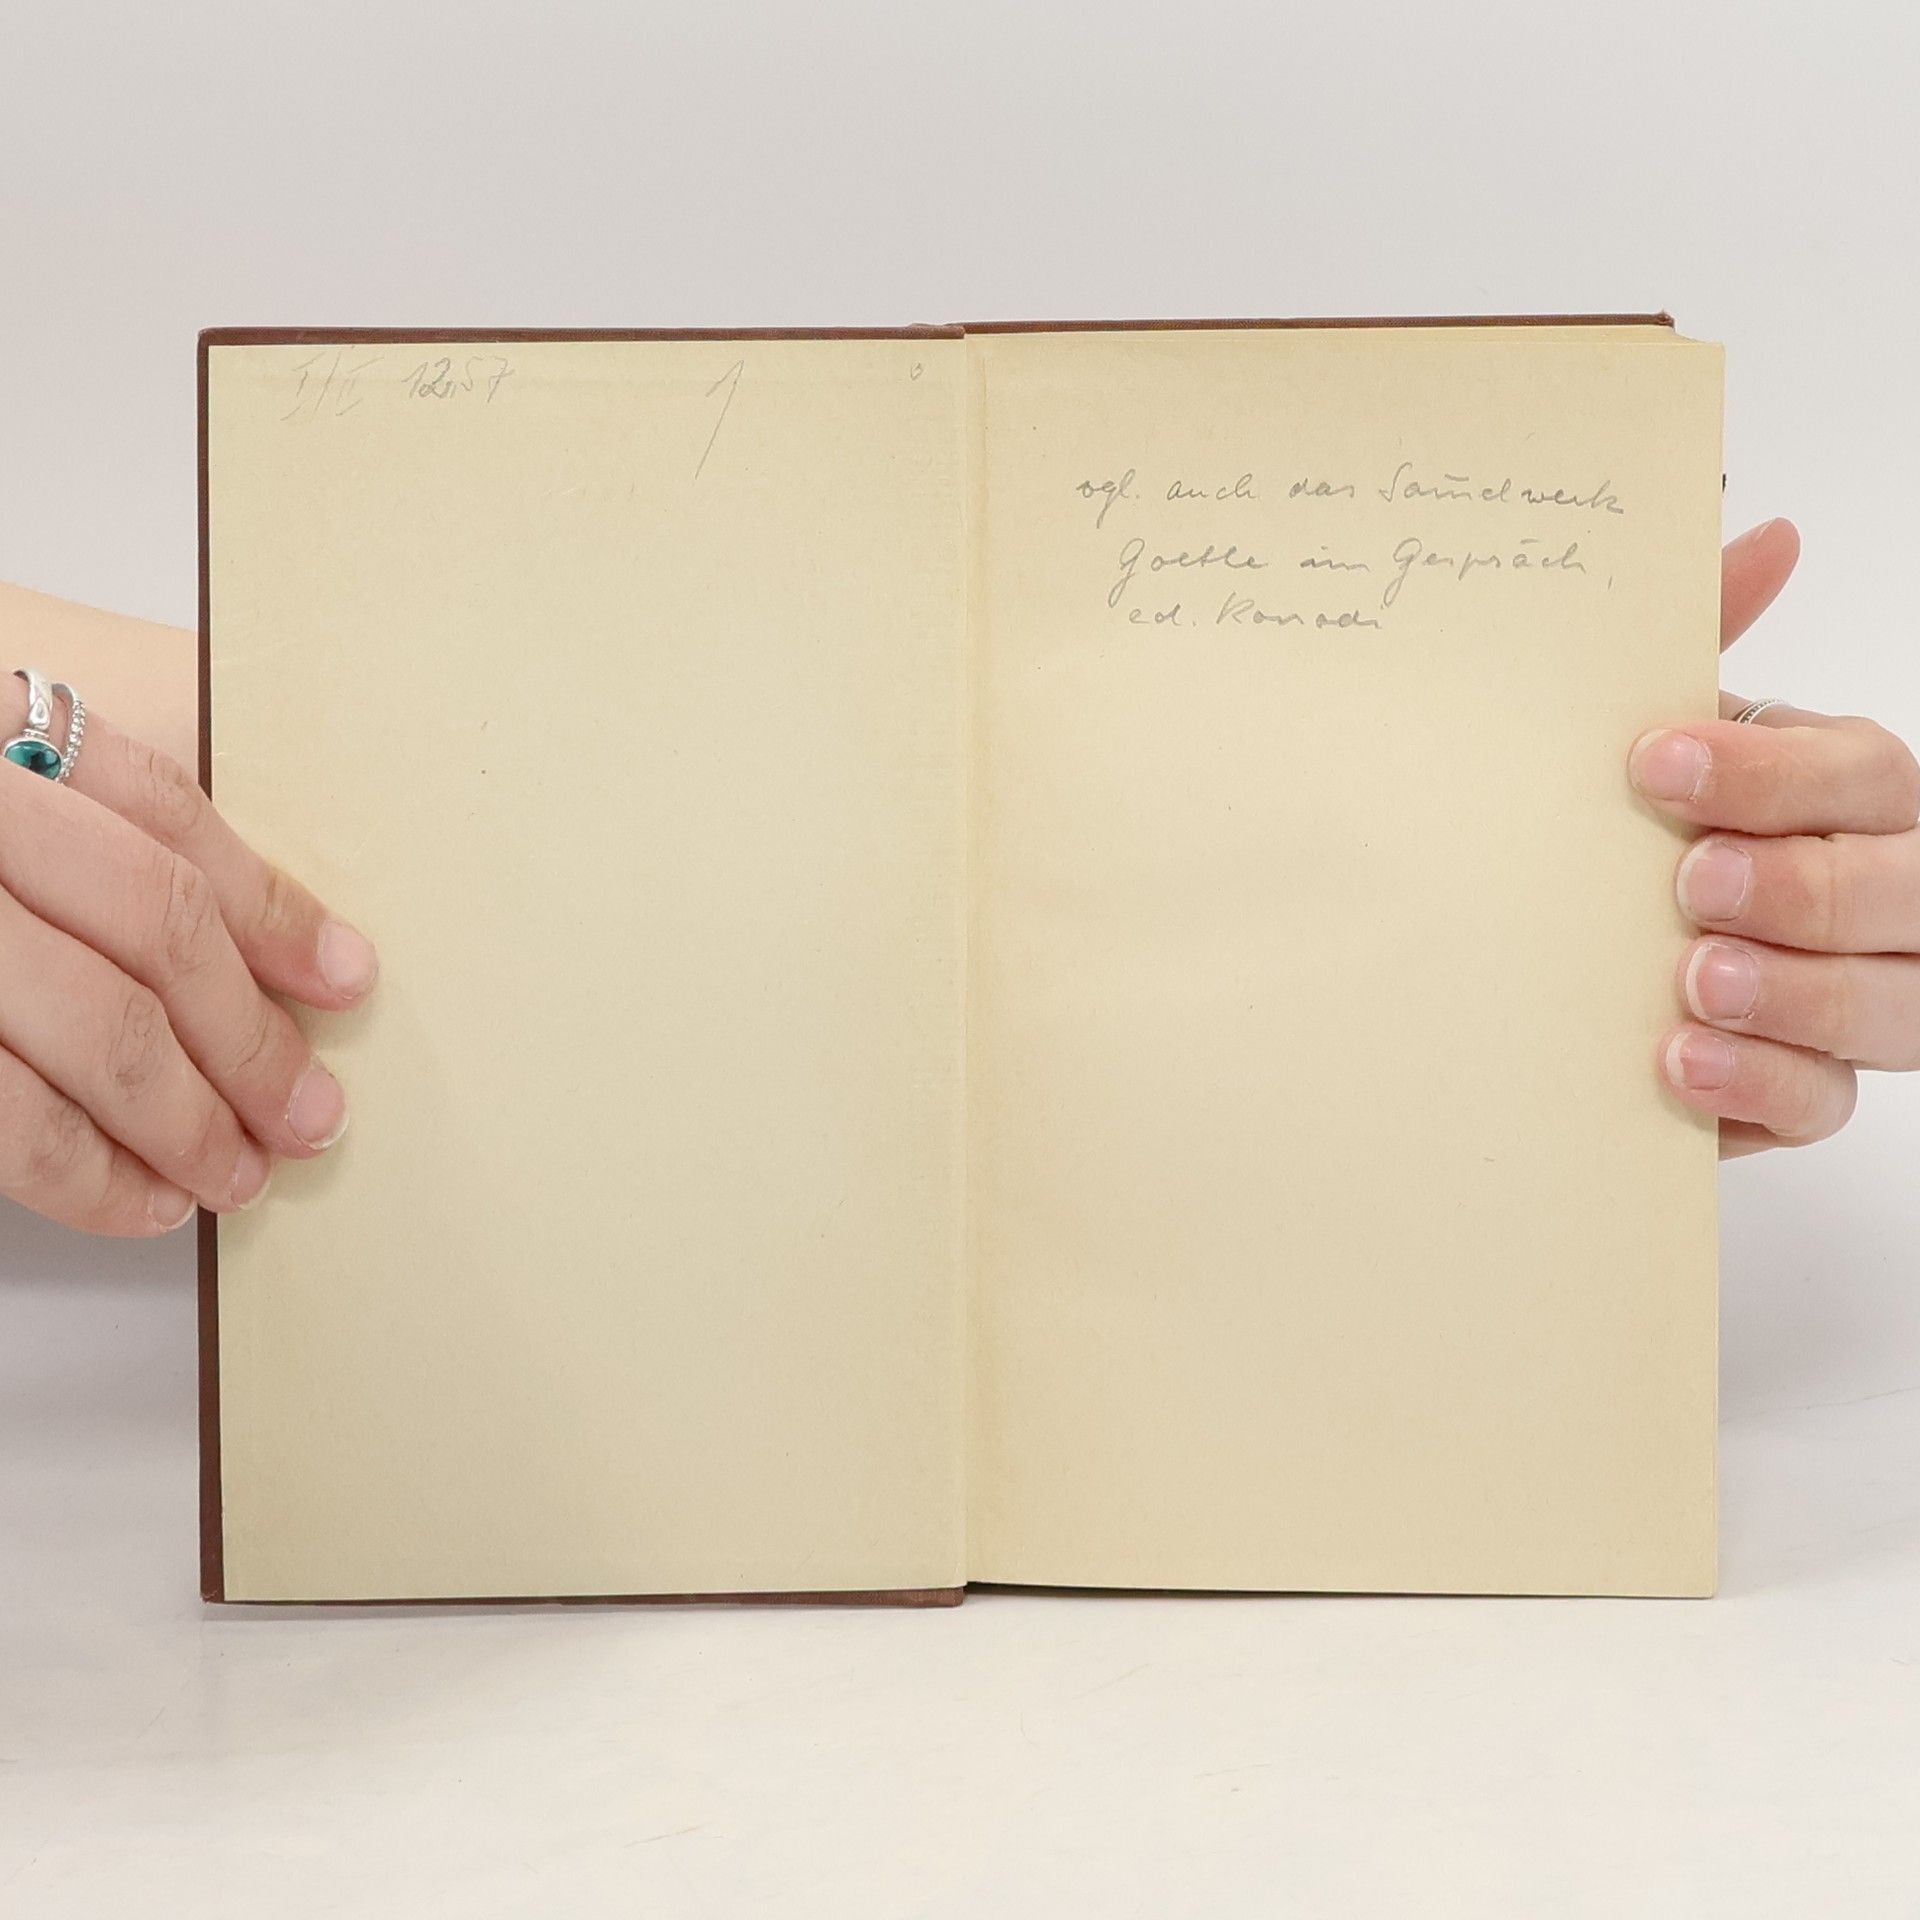 I/II 12.57 1
vgl. auch das Sam̄elwerk
Goethe im Gespräch,
ed. Konradi